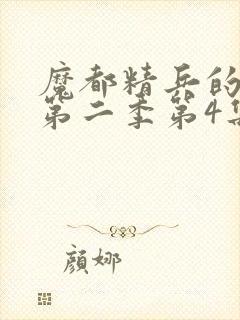 魔都精兵的
第二季第4集
顔娜